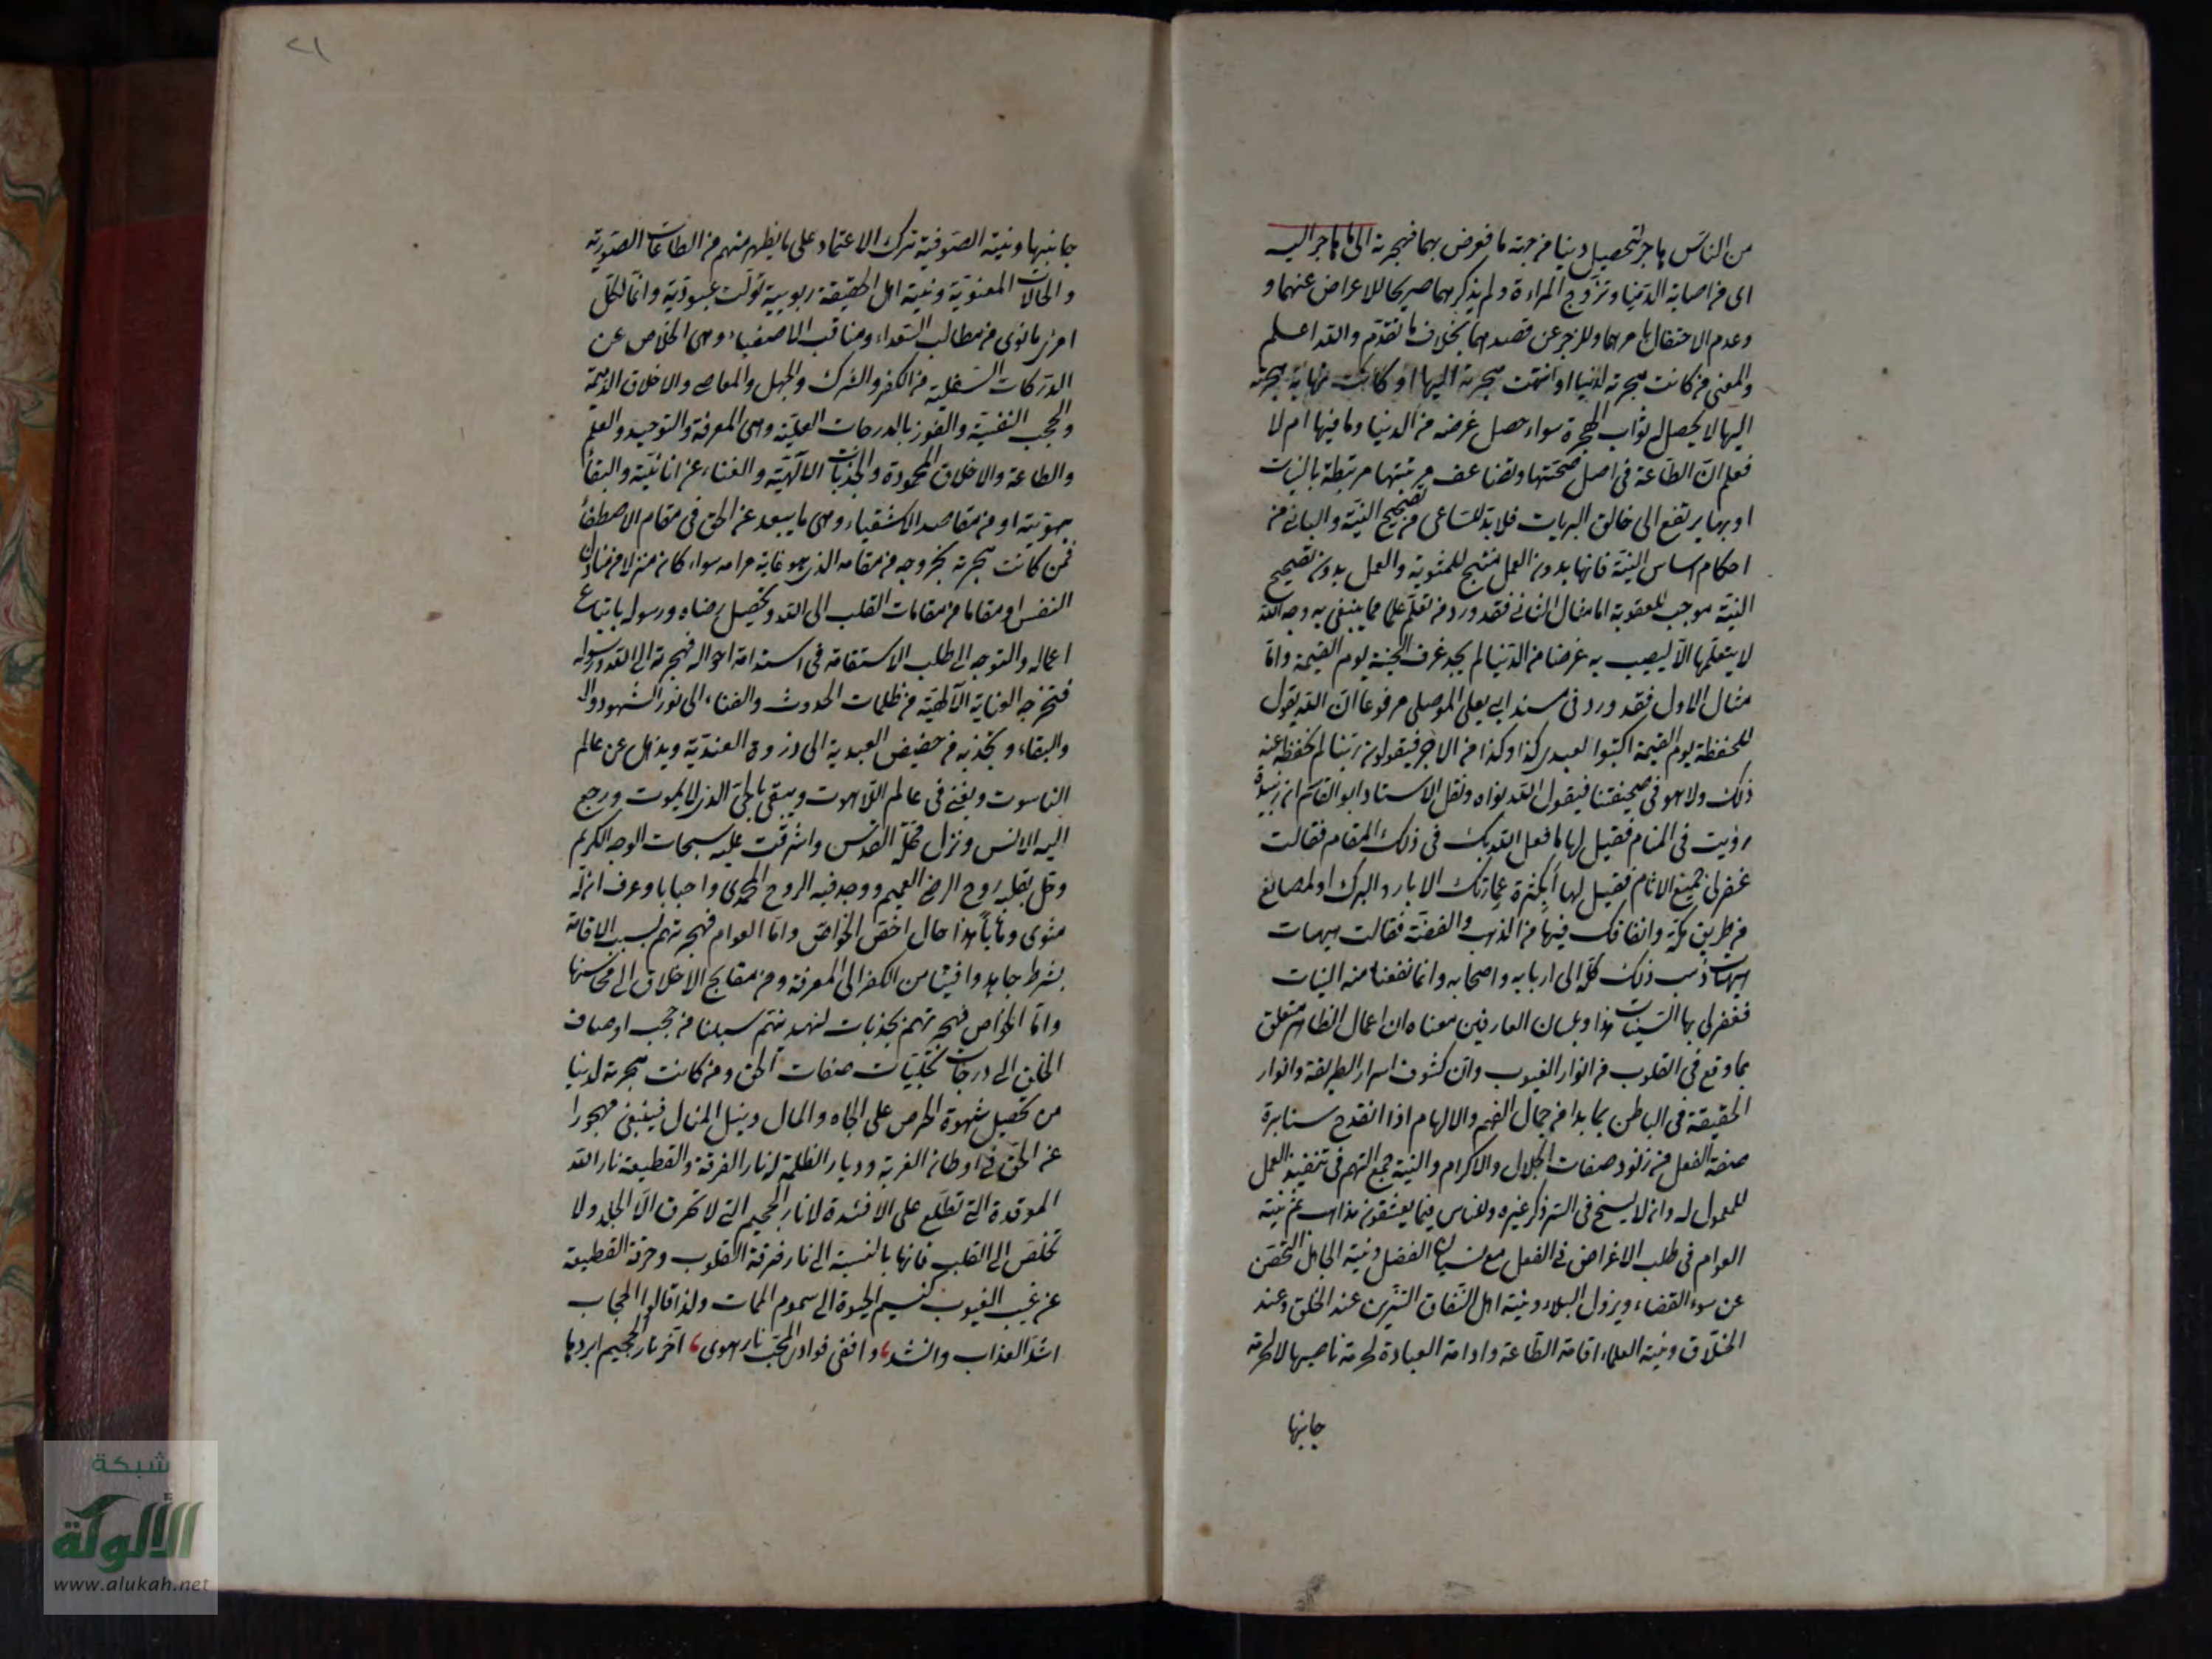 من الناس هاجر لتحصيل دنيا من جهة ما فعرض بهما فهجرته الى ما هاجر اليه
اى من اصابة الدنيا وتزوج المراءة ولم يذكر بهما صريحا للاعراض عنهما و
وعدم الاحتفال بامرهما وللزجر عن قصدهما بخلاف ما تقدم والله اعلم
والمعنى من كانت هجرته لدنيا او انتهت هجرته اليها او كانت نهاية هجرته
اليها لا يحصل له ثواب الهجرة سواء حصل غرضه من الدنيا وما فيها ام لا
فعلم ان الطاعة فى اصل صحتها وتضاعف مرتبتها مرتبطة بالنيات
اوبها يرتفع الى خالق البريات فلا بد للساعى من تصحيح النية والبانى من
احكام اساس النية فانها بدون العمل منتج للمثوبة والعمل بدون تصحيح
النية موجب للعقوبة اما مثال الثانى فقد ورد من تعلم علما مما يبتغى به وجه الله
لا يتعلمها الا ليصيب به غرضا من الدنيا لم يجد عرف الجنة يوم القيمة واما
مثال الاول فقد ورد فى مسند ابى يعلى الموصلى مرفوعا ان الله يقول
للحفظة يوم القيمة اكتبوا لعبدى كذا وكذا من الاجر فيقولون ربنا لم نحفظ عنه
ذلك ولا هو فى صحيفتنا فيقول الله نواه ونقل الاستاد ابو القاسم ان زبيدة
رؤيت فى المنام فقيل لها ما فعل الله بك فى ذلك المقام فقالت
غفر لى جميع الاثام فقيل لها أبكثرة عمارتك الابار والبرك والمصانع
من طريق مكة وانفاقك فيها من الذهب والفضة فقالت هيهات
هيهات ذهب ذلك كله الى اربابه واصحابه وانما نفعنا منه النيات
فغفر لى بها السيئات هذا وبلسان العارفين معناه ان اعمال الظاهر متعلق
بما وقع فى القلوب من انوار الغيوب وان كشوف اسرار الطريقة وانوار
الحقيقة فى الباطن بما بدا من جمال الفهم والالهام اذا انقدح سنا برة
صفة الفعل من زنود صفات الجلال والاكرام والنية جمع الهم فى تنفيذ العمل
للمعمول له وان لا يسنح فى السر ذكر غيره وللناس فيما يعشقون مذاهب ثم نية
العوام فى طلب الاغراض فى الفعل مع نسيان الفضل ونية الجاهل التحصن
عن سوء القضاء ونزول البلاء ونية اهل النفاق التزين عند الخلق وعند
الخلاق ونية العلماء اقامة الطاعة وادامة العبادة لحرمة ناصيها لا لحرمة
جانبها
٢١
جانبها ونية الصوفية ترك الاعتماد على ما يظهر منهم من الطاعات الصورية
والحالات المعنوية ونية اهل الحقيقة ربوبية تولت عبودية وانما لكل
امرئ ما نوى من مطالب السعداء ومناقب الاصفياء وهى الخلاص عن
الدركات السفلية من الكفر والشرك والجهل والمعاصى والاخلاق الذميمة
والحجب النفسية والفوز بالدرجات العلية وهى المعرفة والتوحيد والعلم
والطاعة والاخلاق المحمودة والجذبات الالهية والفناء عن انانية والبقاء
بهويته او من مقاصد الاشقياء وهى ما يبعد عن الحق فى مقام الاصطفاء
فمن كانت هجرته بخروجه من مقامه الذى هو غاية مرامه سواء كان منزلا من منازل
النفس او مقاما من مقامات القلب الى الله وتحصيل رضاه ورسوله باتباع
اعماله والتوجه الى طلب الاستقامة فى استدامة احواله فهجرته الى الله ورسوله
فتخرجه العناية الالهية من ظلمات الحدوث والفناء الى نور الشهود وال
والبقاء وتجذبه من حضيض العبدية الى ذروة العندية ويذهل عن عالم
الناسوت ويفنى فى عالم اللاهوت ويبقى بالحى الذى لا يموت ورجع
اليه الانس ونزل محلة القدس واشرقت عليه سبحات الوجه الكريم
وحل بقلبه روح الرضى العميم ووجد فيه الروح المحمدى واحبابا وعرف ان له
مثوى ومآبا هذا حال اخص الخواص واما العوام فهجرتهم بسبب الاقامة
بشرط جاهدوا فينا من الكفر الى المعرفة ومن مقابح الاخلاق الى محاسنها
واما الخواص فهجرتهم بجذبات لنهدينهم سبلنا من حجب اوصاف
الخلق الى درجات تجليات صفات الحق ومن كانت هجرته لدنيا
من تحصيل شهوة الحرص على الجاه والمال ونيل المنال فيبقى مهجورا
عن الحق فى اوطان الغربة وديار الظلمة له نار الفرقة والقطيعة نار الله
الموقدة التى تطلع على الافئدة لا نار الجحيم التى لا تحرق الا الجلد ولا
تخلص الى القلب فانها بالنسبة الى نار فرقة القلوب وحرقة القطيعة
عن غيب الغيوب كنسيم الحيوة الى سموم الممات ولذا قالوا الحجاب
اشد العذاب وانشد، وافى فوادى المحب نار هوى، آخر نار الجحيم ابردها
شبكة
الألوكة
www.alukah.net